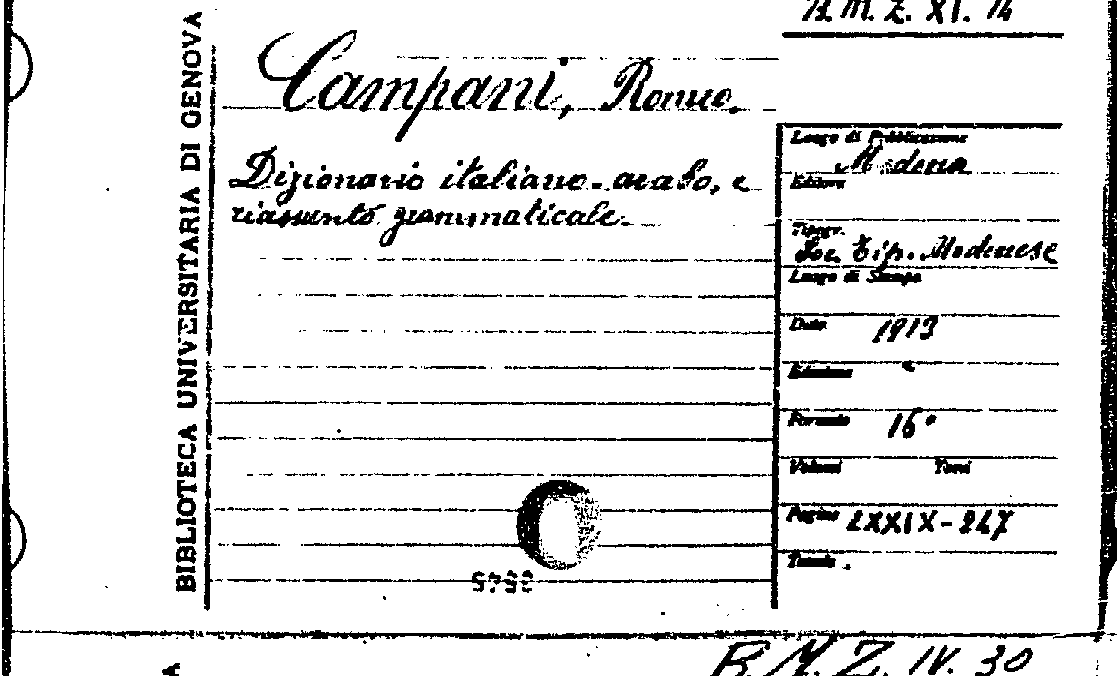 B.M.Z. XI. 14
BIBLIOTECA UNIVERSITARIA DI GENOVA
Campani, Romeo.
Dizionario italiano-arabo, e
riassunto grammaticale.
Luogo di Pubblicazione
Modena
Editore
Tipogr.
Soc. Tip. Modenese
Luogo di Stampa
Data 1913
Edizione
Formato 16°
Volumi Tomi
Pagine LXXIX-247
B.M.Z. IV. 30
A